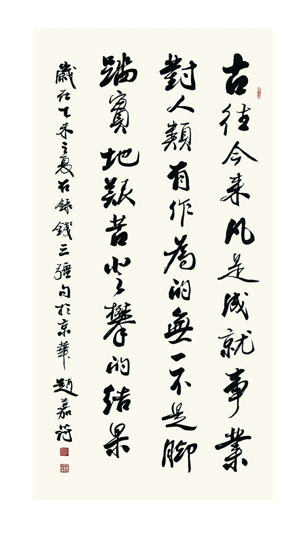 古往今来凡是成就事業
對人類有作為的無一不是脚
踏實地艱苦登攀的结果
歲在乙未之夏右録錢三強句於京華 趙嘉符